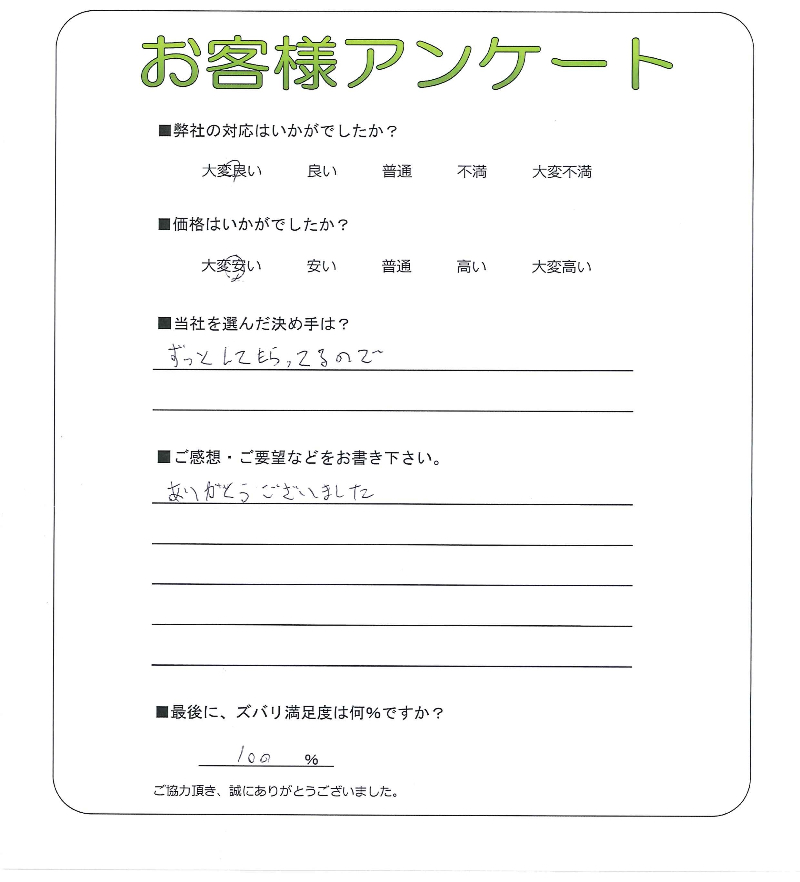 お客様アンケート
■弊社の対応はいかがでしたか？
大変良い 良い 普通 不満 大変不満
■価格はいかがでしたか？
大変安い 安い 普通 高い 大変高い
■当社を選んだ決め手は？
ずっとしてもらってるので
■ご感想・ご要望などをお書き下さい。
ありがとうございました
■最後に、ズバリ満足度は何%ですか？
100 %
ご協力頂き、誠にありがとうございました。